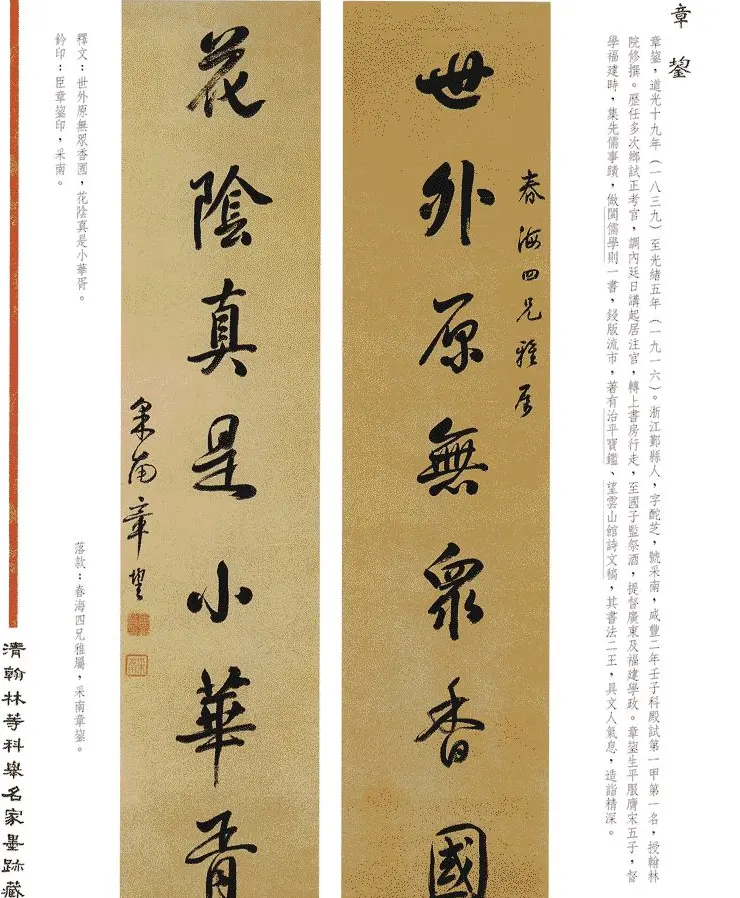 章鋆
章鋆，道光十九年（一八三九）至光緒五年（一九一六）。浙江鄞縣人，字酡芝，號采南，咸豐二年壬子科殿試第一甲第一名，授翰林
院修撰。歷任多次鄉試正考官，調內廷日講起居注官，轉上書房行走，至國子監祭酒，提督廣東及福建學政。章鋆生平服膺宋五子，督
學福建時，集先儒事蹟，倣閩儒學則一書，鋟版流市，著有治平寶鑑、望雲山館詩文稿，其書法二王，具文人氣息，造詣精深。
春海四兄雅属
世外原無眾香國
花陰真是小華胥
采南章鋆
釋文：世外原無眾香國，花陰真是小華胥。
鈐印：臣章鋆印，采南。
落款：春海四兄雅屬，采南章鋆。
清翰林等科舉名家墨跡藏